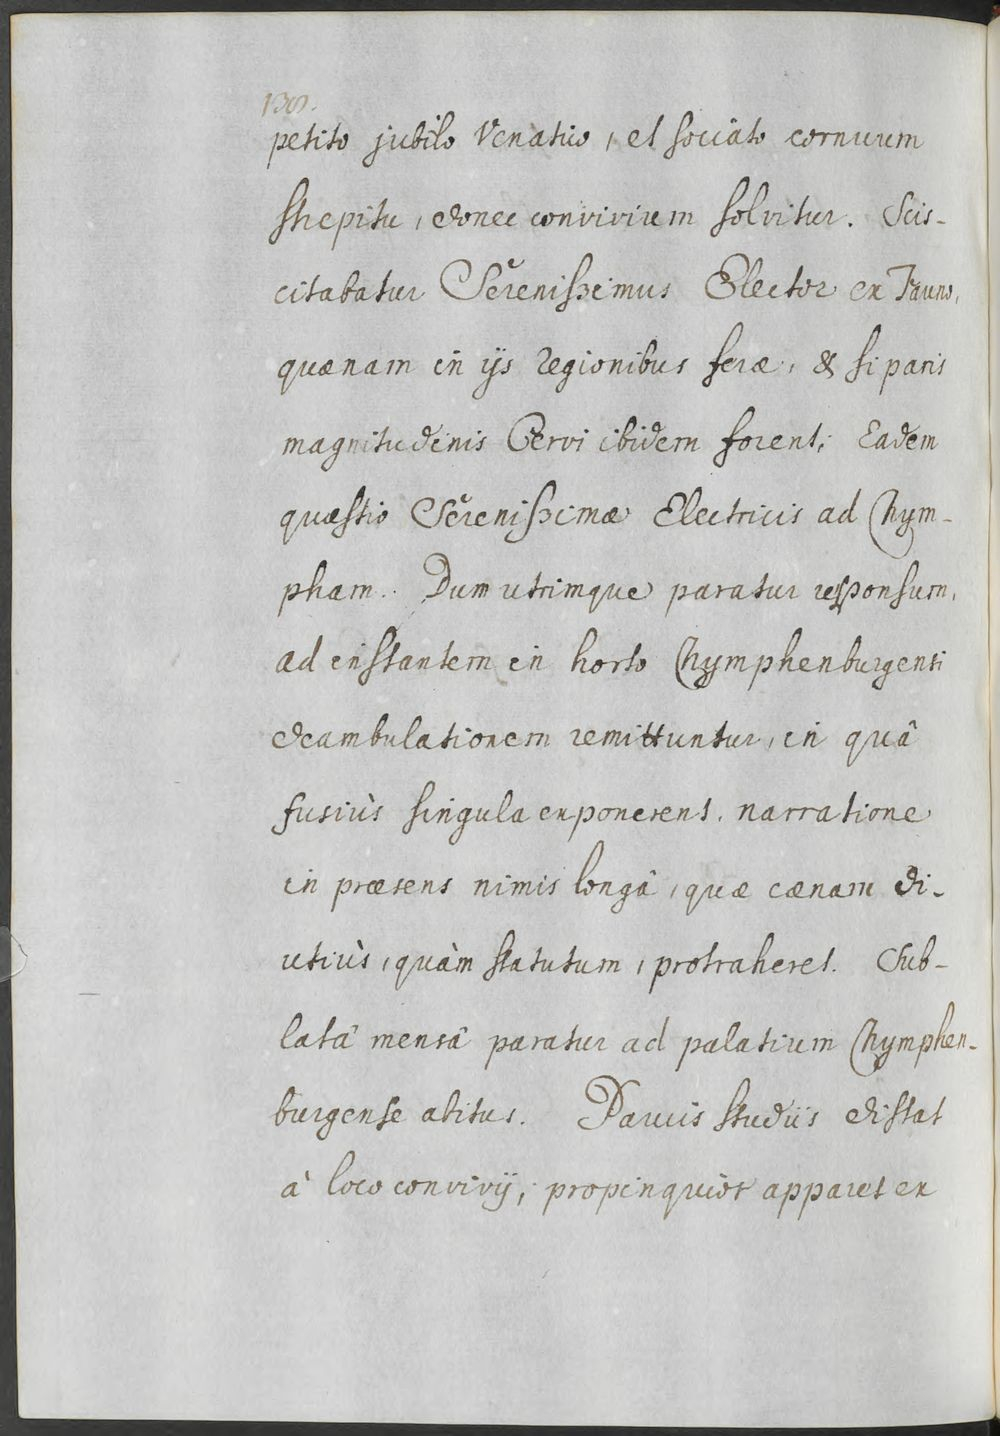 petito jubilo Venatico, et sociato cornuum
strepitu, donec convivium solvitur. Scis-
citabatur Serenissimus Elector ex Fauno,
quænam in ijs regionibus feræ, & si paris
magnitudinis Cervi ibidem forent; Eadem
quæstio Serenissimæ Electricis ad Nym-
pham. Dum utrimque paratur responsum,
ad instantem in horto Nymphenburgensi
deambulationem remittuntur, in quâ
fusiùs singula exponerent. narratione
in præsens nimis longâ, quæ cænam di-
utiùs, quàm statutum, protraheret. Sub-
latâ mensâ paratur ad palatium Nymphen-
burgense abitus. Paucis studiis distat
à loco convivij, propinquior apparet ex